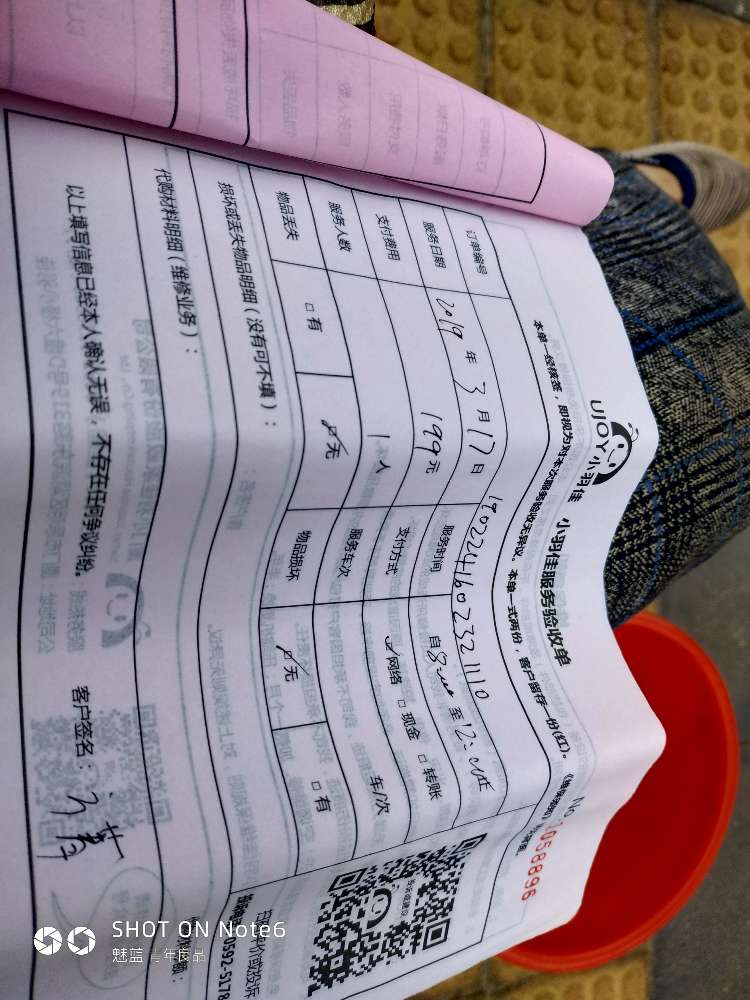 UJOY小羽佳 小羽佳服务验收单
No 1058896
本单一经核签，即视为对本次服务验收无异议。本单一式两份，客户留存一份(红)。
订单编号 1902241602321110
服务日期 2019 年 3 月 17 日 服务时间 自 8:00 至 12:00
支付费用 199 元 支付方式 ☑网络 □现金 □转账
服务人数 1 人 服务车次 车/次
物品丢失 □有 ☑无 物品损坏 ☑无 □有
损坏或丢失物品明细（没有可不填）：
代购材料明细（维修业务）：
以上填写信息已经本人确认无误，不存在任何争议纠纷。 客户签名：
0592-5178
SHOT ON Note6
魅蓝 青年良品